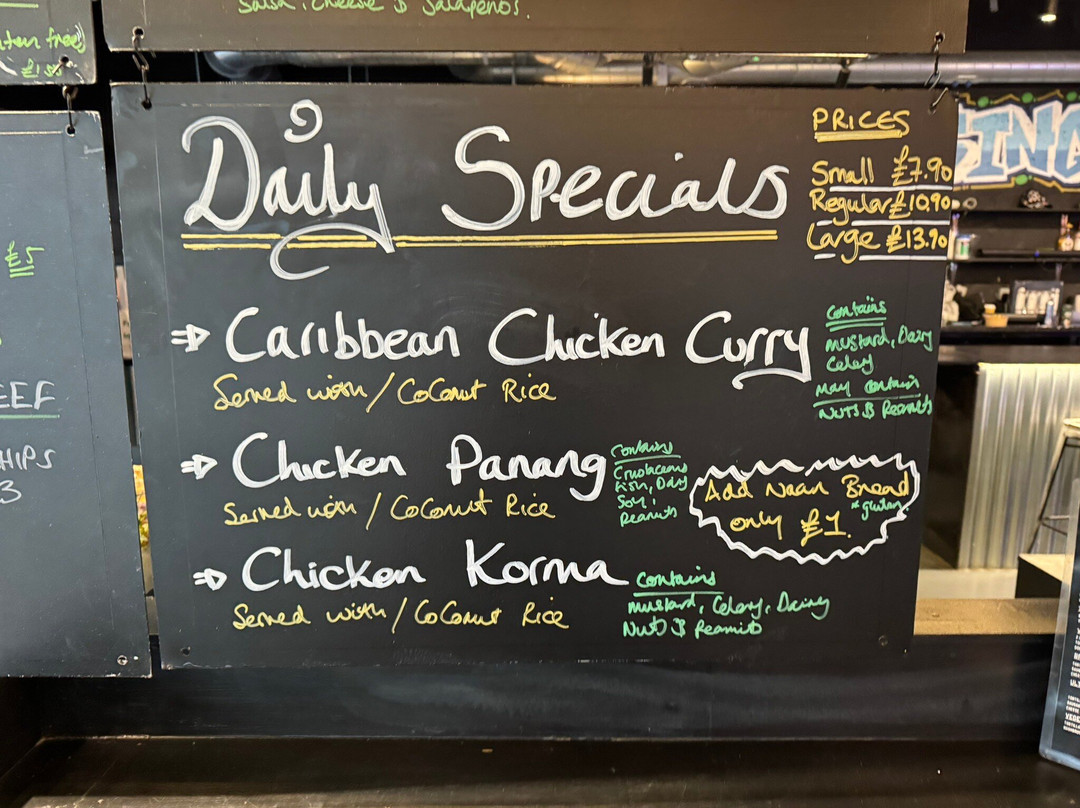 Salsa, Cheese & Jalapenos.
£5
EEF
HIPS
3
Daily Specials
PRICES
Small £7.90
Regular £10.90
Large £13.90
⇒ Caribbean Chicken Curry
Served with / Coconut Rice
Contains
Mustard, Dairy
Celery
May contain
Nuts & Peanuts
⇒ Chicken Panang
Served with / Coconut Rice
Contains
Crustaceans
Fish, Dairy
Soy,
Peanuts
Add Naan Bread
*gluten
only £1.
⇒ Chicken Korma
Served with / Coconut Rice
Contains
Mustard, Celery, Dairy
Nuts & Peanuts
ING